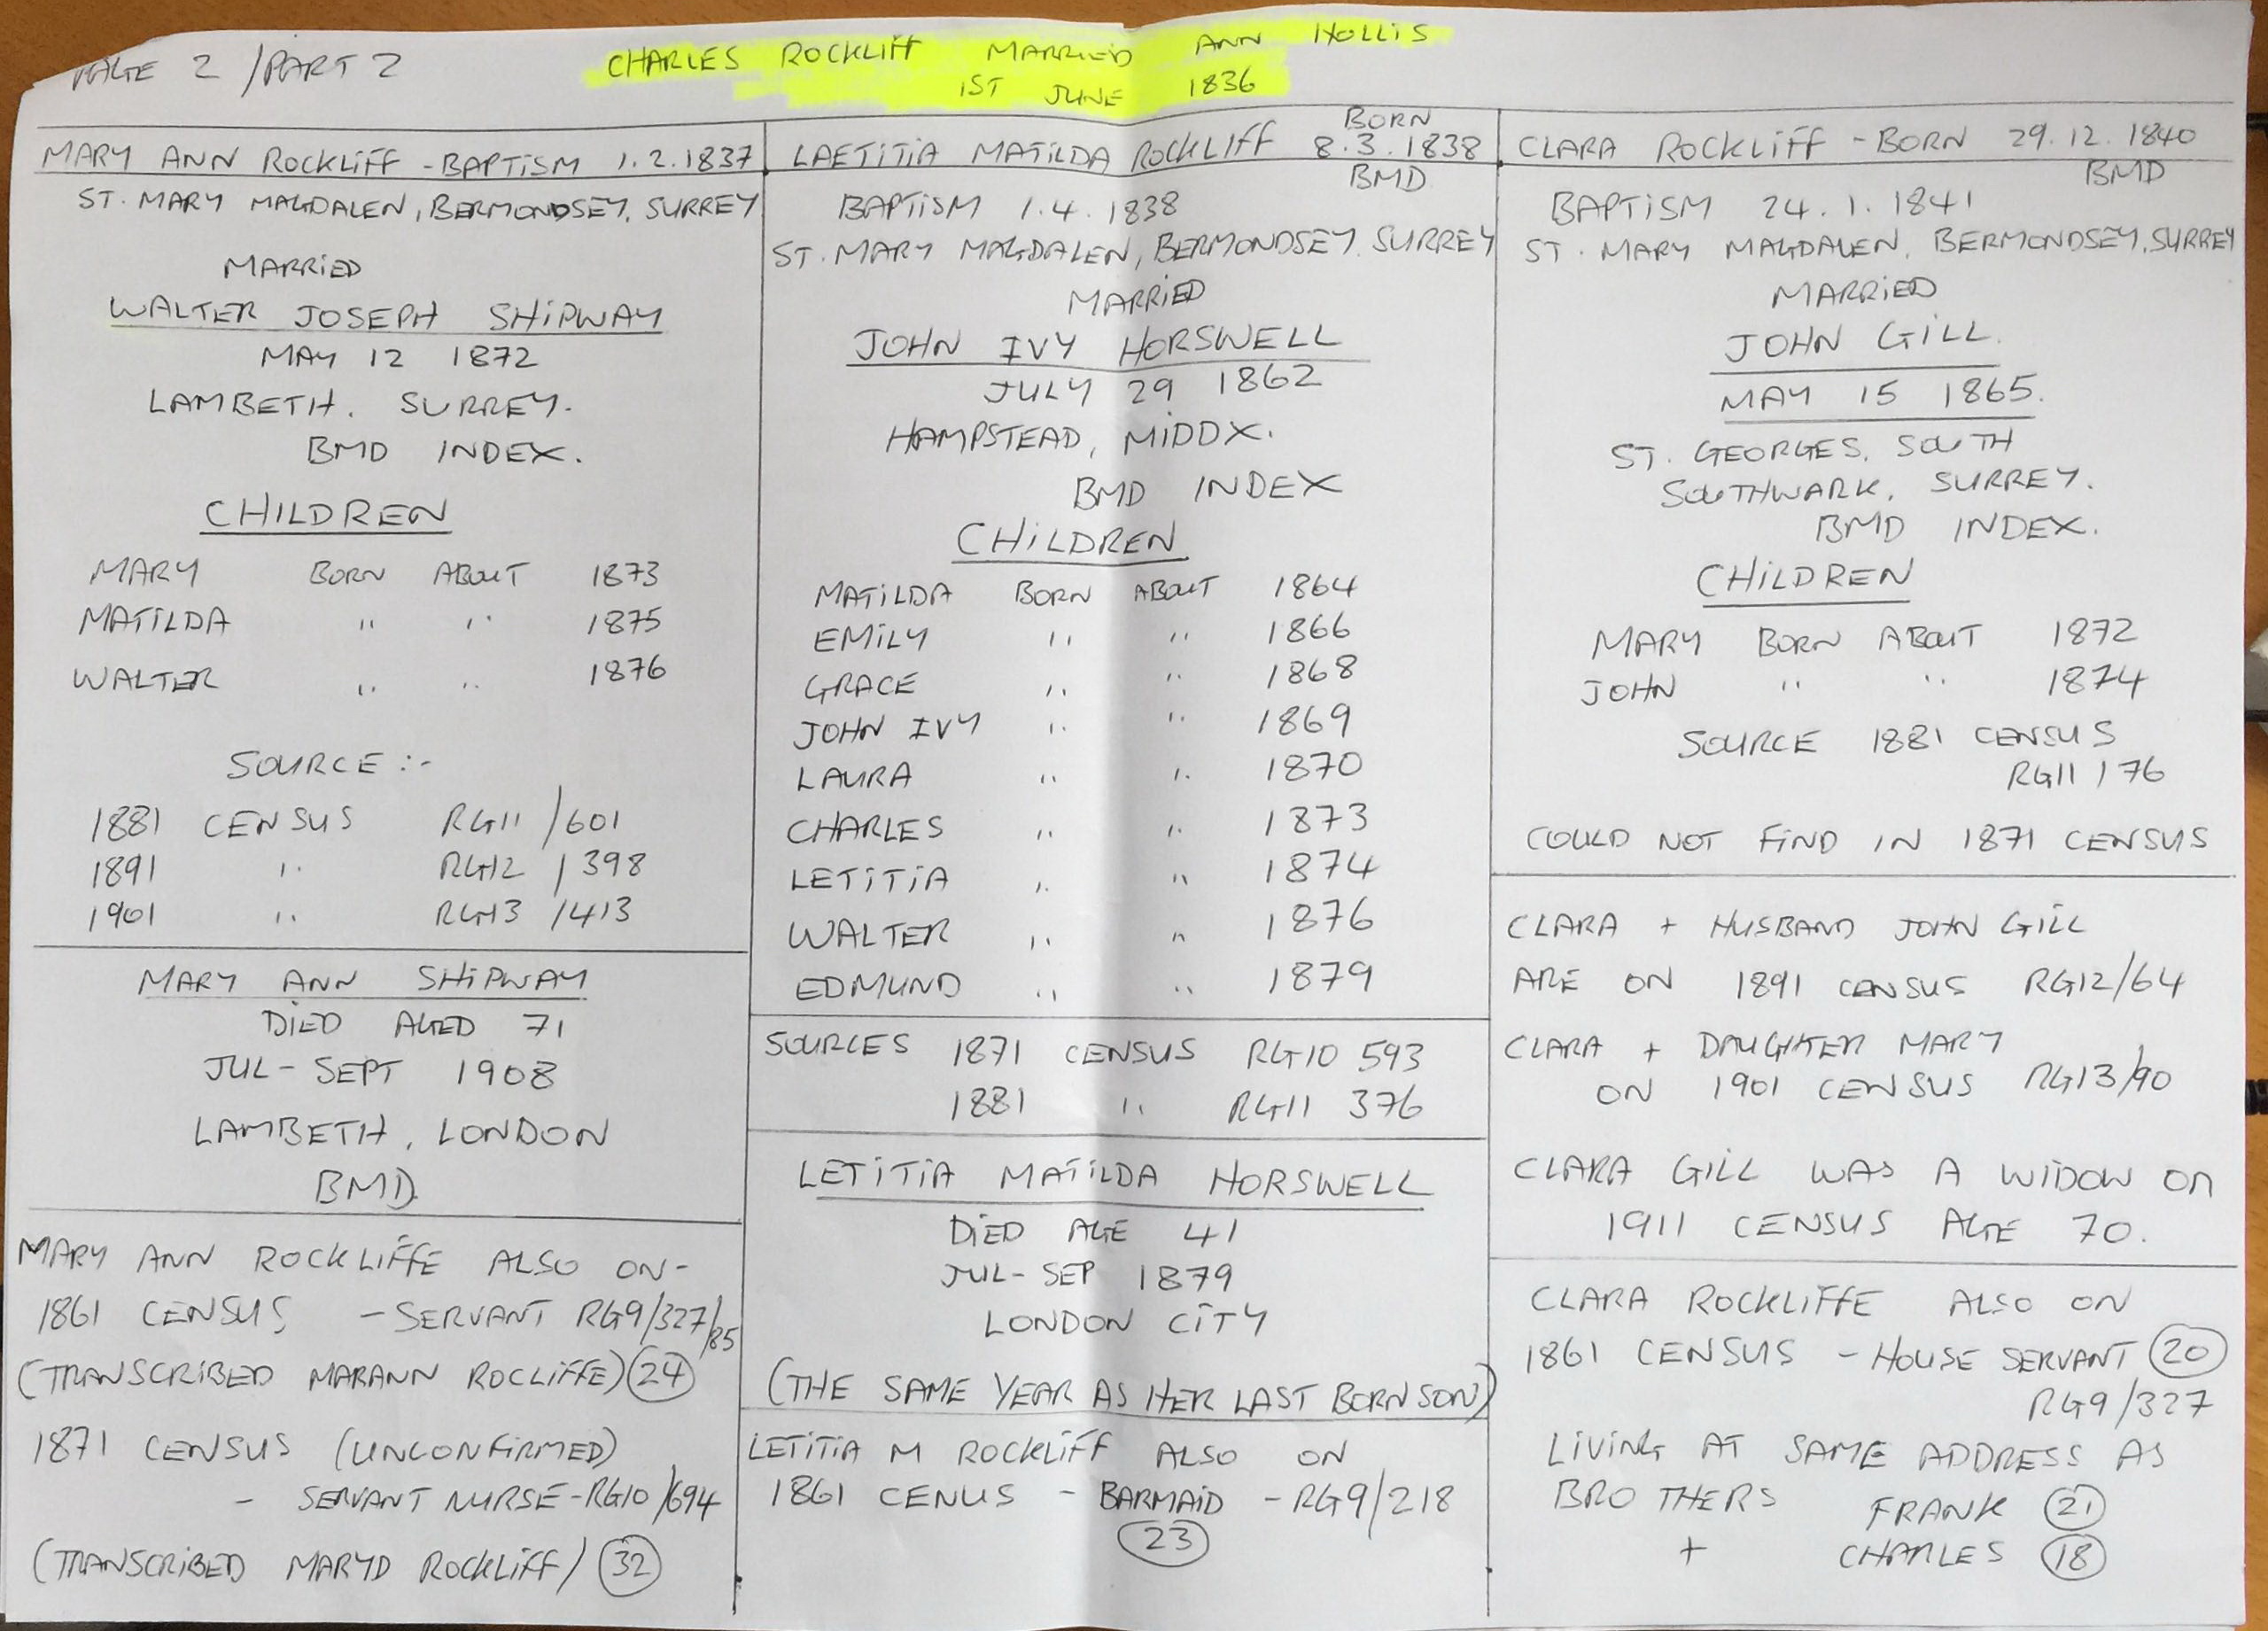 PAGE 2 / PART 2
CHARLES ROCKLIFF MARRIED ANN HOLLIS
1ST JUNE 1836
MARY ANN ROCKLIFF - BAPTISM 1.2.1837
ST. MARY MAGDALEN, BERMONDSEY, SURREY
MARRIED
WALTER JOSEPH SHIPWAY
MAY 12 1872
LAMBETH. SURREY.
BMD INDEX.
CHILDREN
MARY BORN ABOUT 1873
MATILDA " " 1875
WALTER " " 1876
SOURCE :-
1881 CENSUS RG11 / 601
1891 " RG12 / 398
1901 " RG13 / 413
MARY ANN SHIPWAY
DIED AGED 71
JUL - SEPT 1908
LAMBETH, LONDON
BMD
MARY ANN ROCKLIFFE ALSO ON -
1861 CENSUS - SERVANT RG9/327/85
(TRANSCRIBED MARANN ROCLIFFE) 24
1871 CENSUS (UNCONFIRMED)
- SERVANT NURSE - RG10/694
(TRANSCRIBED MARYD ROCKLIFF) 32
BORN
LAETITIA MATILDA ROCKLIFF 8.3.1838
BMD
BAPTISM 1.4.1838
ST. MARY MAGDALEN, BERMONDSEY. SURREY
MARRIED
JOHN IVY HORSWELL
JULY 29 1862
HAMPSTEAD, MIDDX.
BMD INDEX
CHILDREN
MATILDA BORN ABOUT 1864
EMILY " " 1866
GRACE " " 1868
JOHN IVY " " 1869
LAURA " " 1870
CHARLES " " 1873
LETITIA " " 1874
WALTER " " 1876
EDMUND " " 1879
SOURCES 1871 CENSUS RG10 593
1881 " RG11 376
LETITIA MATILDA HORSWELL
DIED AGE 41
JUL - SEP 1879
LONDON CITY
(THE SAME YEAR AS HER LAST BORN SON)
LETITIA M ROCKLIFF ALSO ON
1861 CENUS - BARMAID - RG9/218
23
CLARA ROCKLIFF - BORN 29.12.1840
BMD
BAPTISM 24.1.1841
ST. MARY MAGDALEN, BERMONDSEY, SURREY
MARRIED
JOHN GILL.
MAY 15 1865.
ST. GEORGES, SOUTH
SOUTHWARK, SURREY.
BMD INDEX.
CHILDREN
MARY BORN ABOUT 1872
JOHN " " 1874
SOURCE 1881 CENSUS
RG11 176
COULD NOT FIND IN 1871 CENSUS
CLARA + HUSBAND JOHN GILL
ARE ON 1891 CENSUS RG12/64
CLARA + DAUGHTER MARY
ON 1901 CENSUS RG13/90
CLARA GILL WAS A WIDOW ON
1911 CENSUS AGE 70.
CLARA ROCKLIFFE ALSO ON
1861 CENSUS - HOUSE SERVANT 20
RG9/327
LIVING AT SAME ADDRESS AS
BROTHERS FRANK 21
+ CHARLES 18